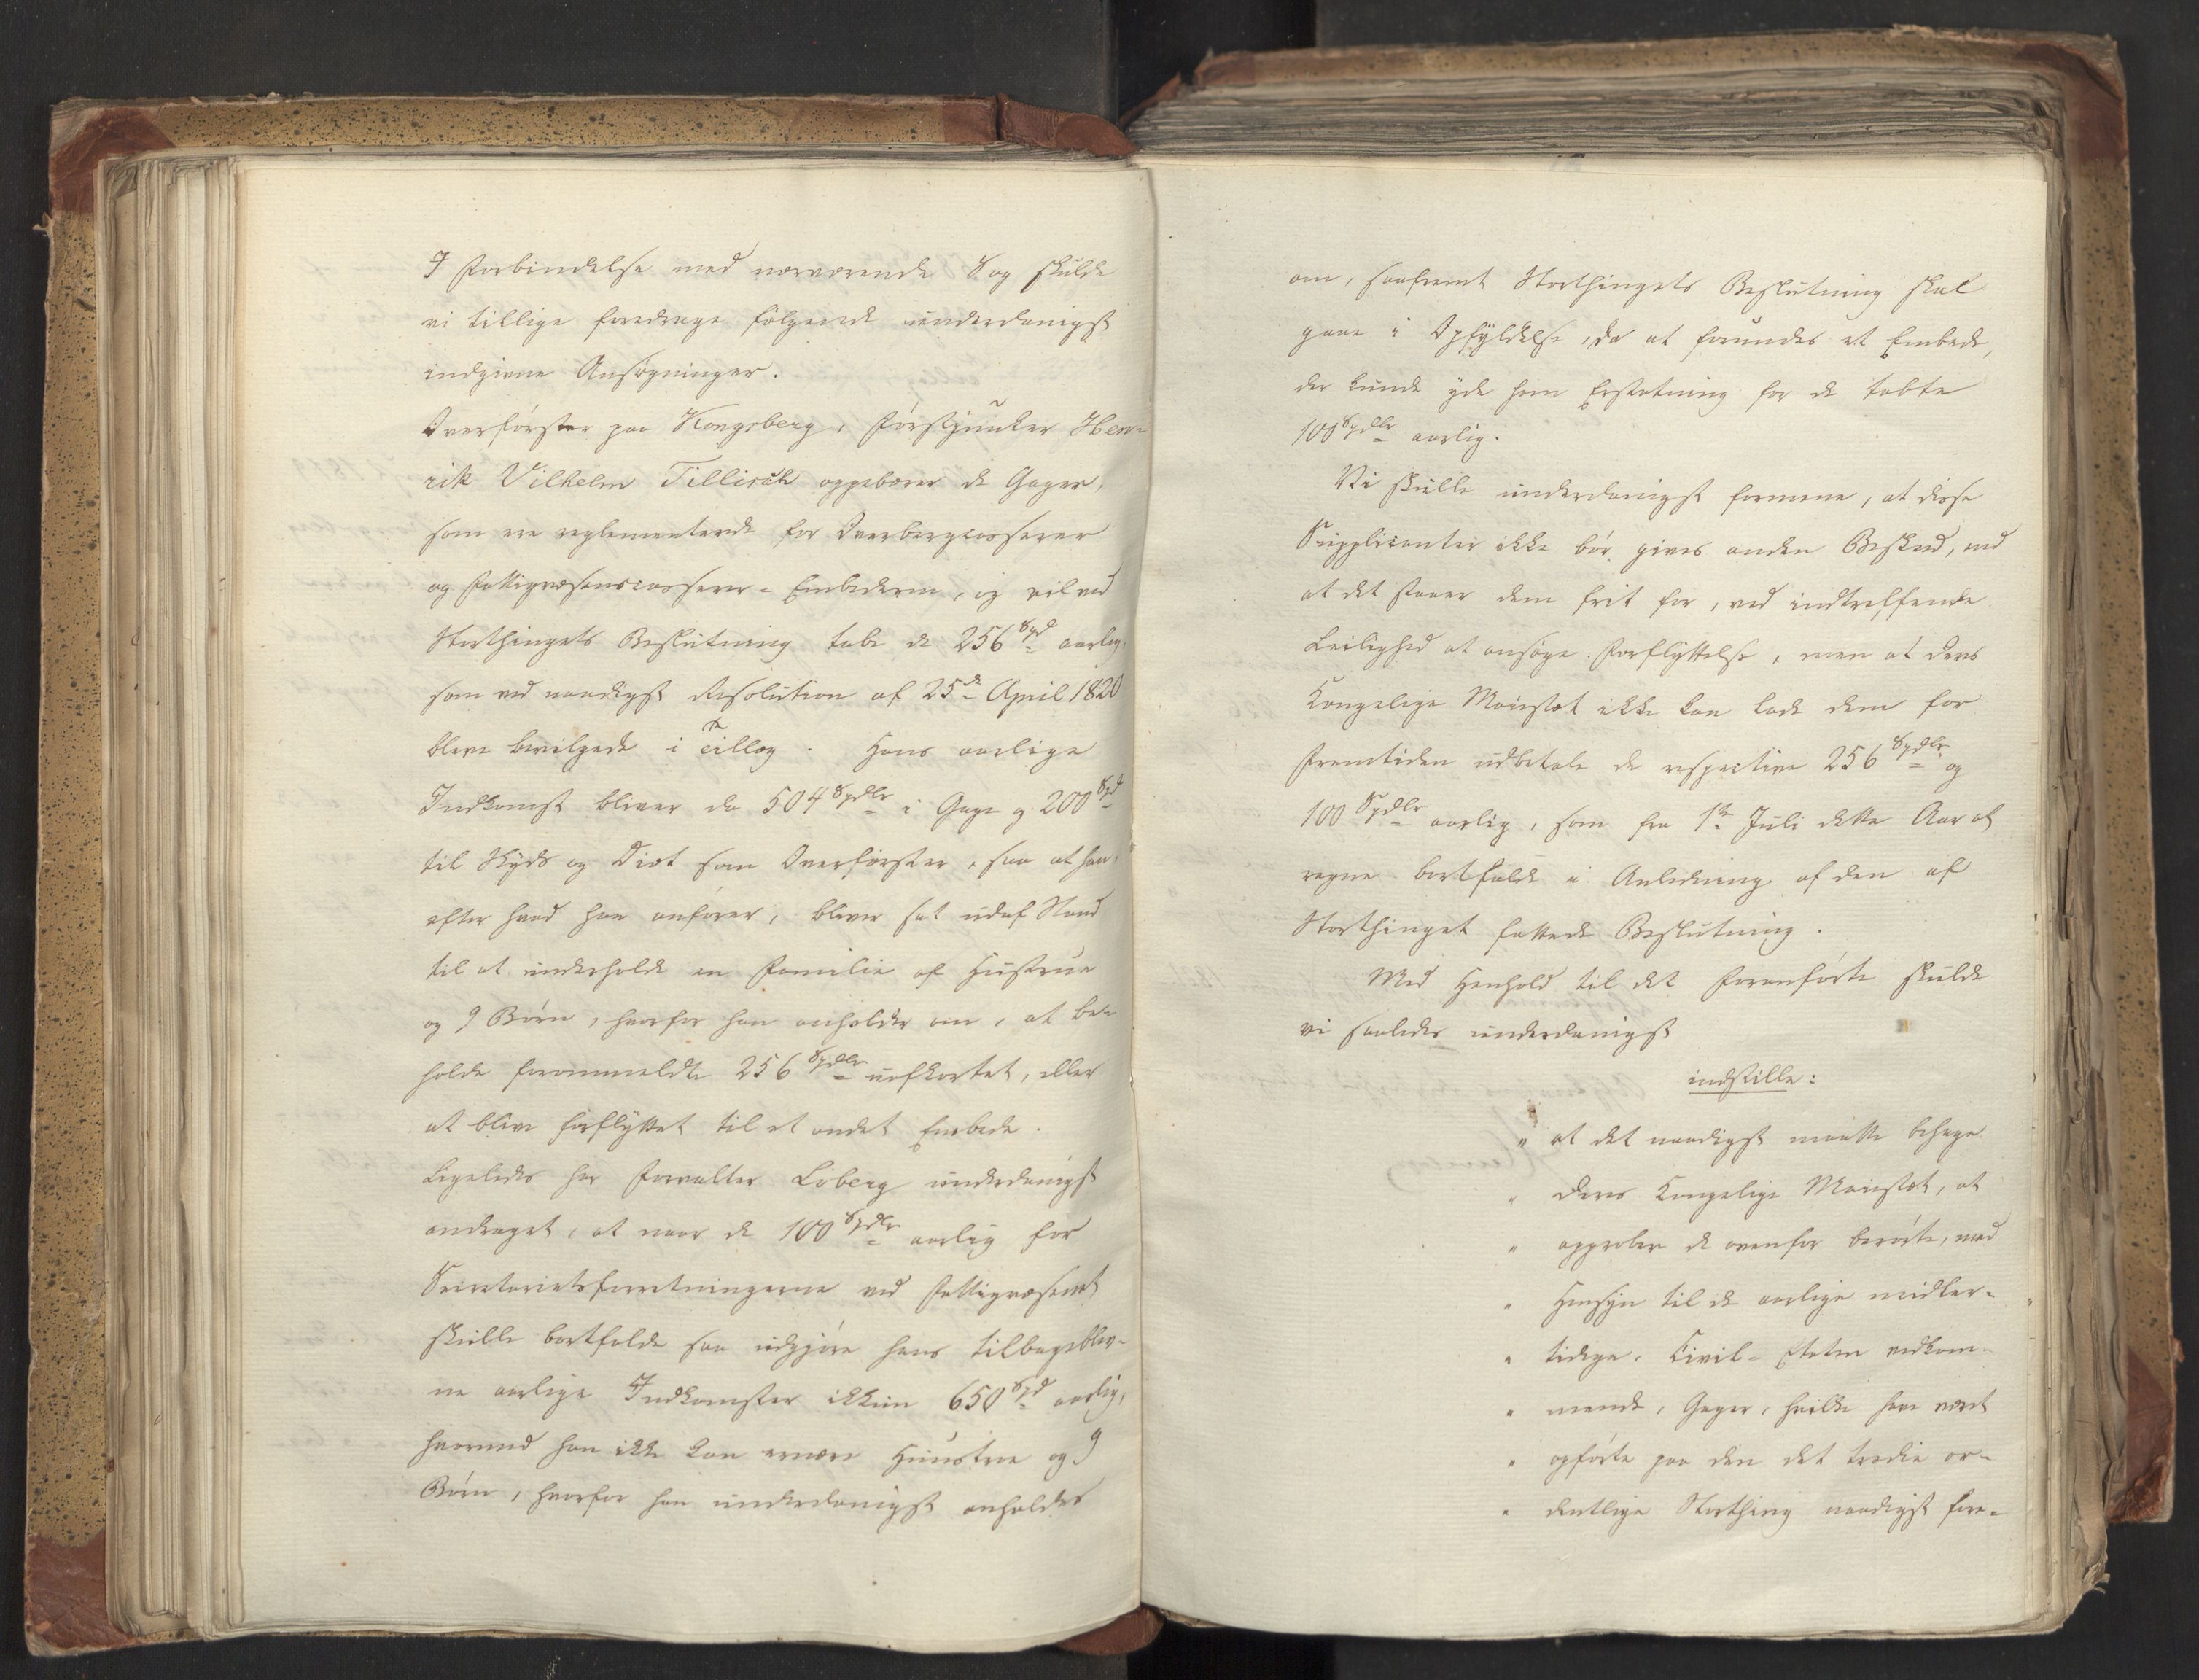 I Forbindelse med nærværende Sag skulde
vi tillige foredrage følgende underdanigst
indgivne Ansøgninger.
Overførster paa Kongsberg, Forstjunker Hen-
rik Vilhelm Tillisch oppebærer de Gager,
som ere reglementerede for Overbergcasserer
og Fattigvæsenscasserer-Embederne, og vil ved
Storthingets Beslutning tabe de 256 Spd aarlig,
som ved naadigst Resolution af 25de April 1820
bleve bevilgede i Tillæg. Hans aarlige
Indkomst bliver da 504 Spdlr i Gage og 200 Spd
til Skyds og Diæt som Overførster, saa at han,
efter hvad han anfører, bliver sat udaf Stand
til at underholde en Familie af Hustrue
og 9 Børn, hvorfor han anholder om, at be-
holde forommeldte 256 Spdlr uafkortet, eller
at blive forflyttet til et andet Embede.
Ligeledes har Forvalter Löberg underdanigst
andraget, at naar de 100 Spdlr aarlig for
Secretariatsforretningerne ved Fattigvæsenet
skulle bortfalde saa udgjøre hans tilbageblev-
ne aarlige Indkomster ikkun 650 Spd aarlig,
hvormed han ikke kan ernære Huustrue og 9
Børn, hvorfor han underdanigst anholder
om, saafremt Storthingets Beslutning skal
gaae i Opfyldelse, da at forundes et Embede,
der kunde yde ham Erstatning for de tabte
100 Spdlr aarlig.
Vi skulle underdanigst formene, at disse
Supplicanter ikke bör gives anden Beskeed, end
at det staaer dem frit for, ved indtreffende
Leilighed at ansøge Forflyttelse, men at Deres
Kongelige Majestæt ikke kan lade dem for
Fremtiden udbetale de respective 256 Spdlr og
100 Spdlr aarlig, som fra 1ste Juli dette Aar at
regne bortfalde i Anledning af den af
Storthinget fattede Beslutning.
Med Henhold til det Foranførte skulde
vi saaledes underdanigst
indstille:
" at det naadigst maatte behage
" Deres Kongelige Majestæt, at
" approbere de ovenfor berørte, med
" Hensyn til de aarlige midler-
" tidige, Civil-Etaten vedkom-
" mende, Gager, hvilke have været
" opførte paa den det tredie or-
" dentlige Storthing naadigst fore-